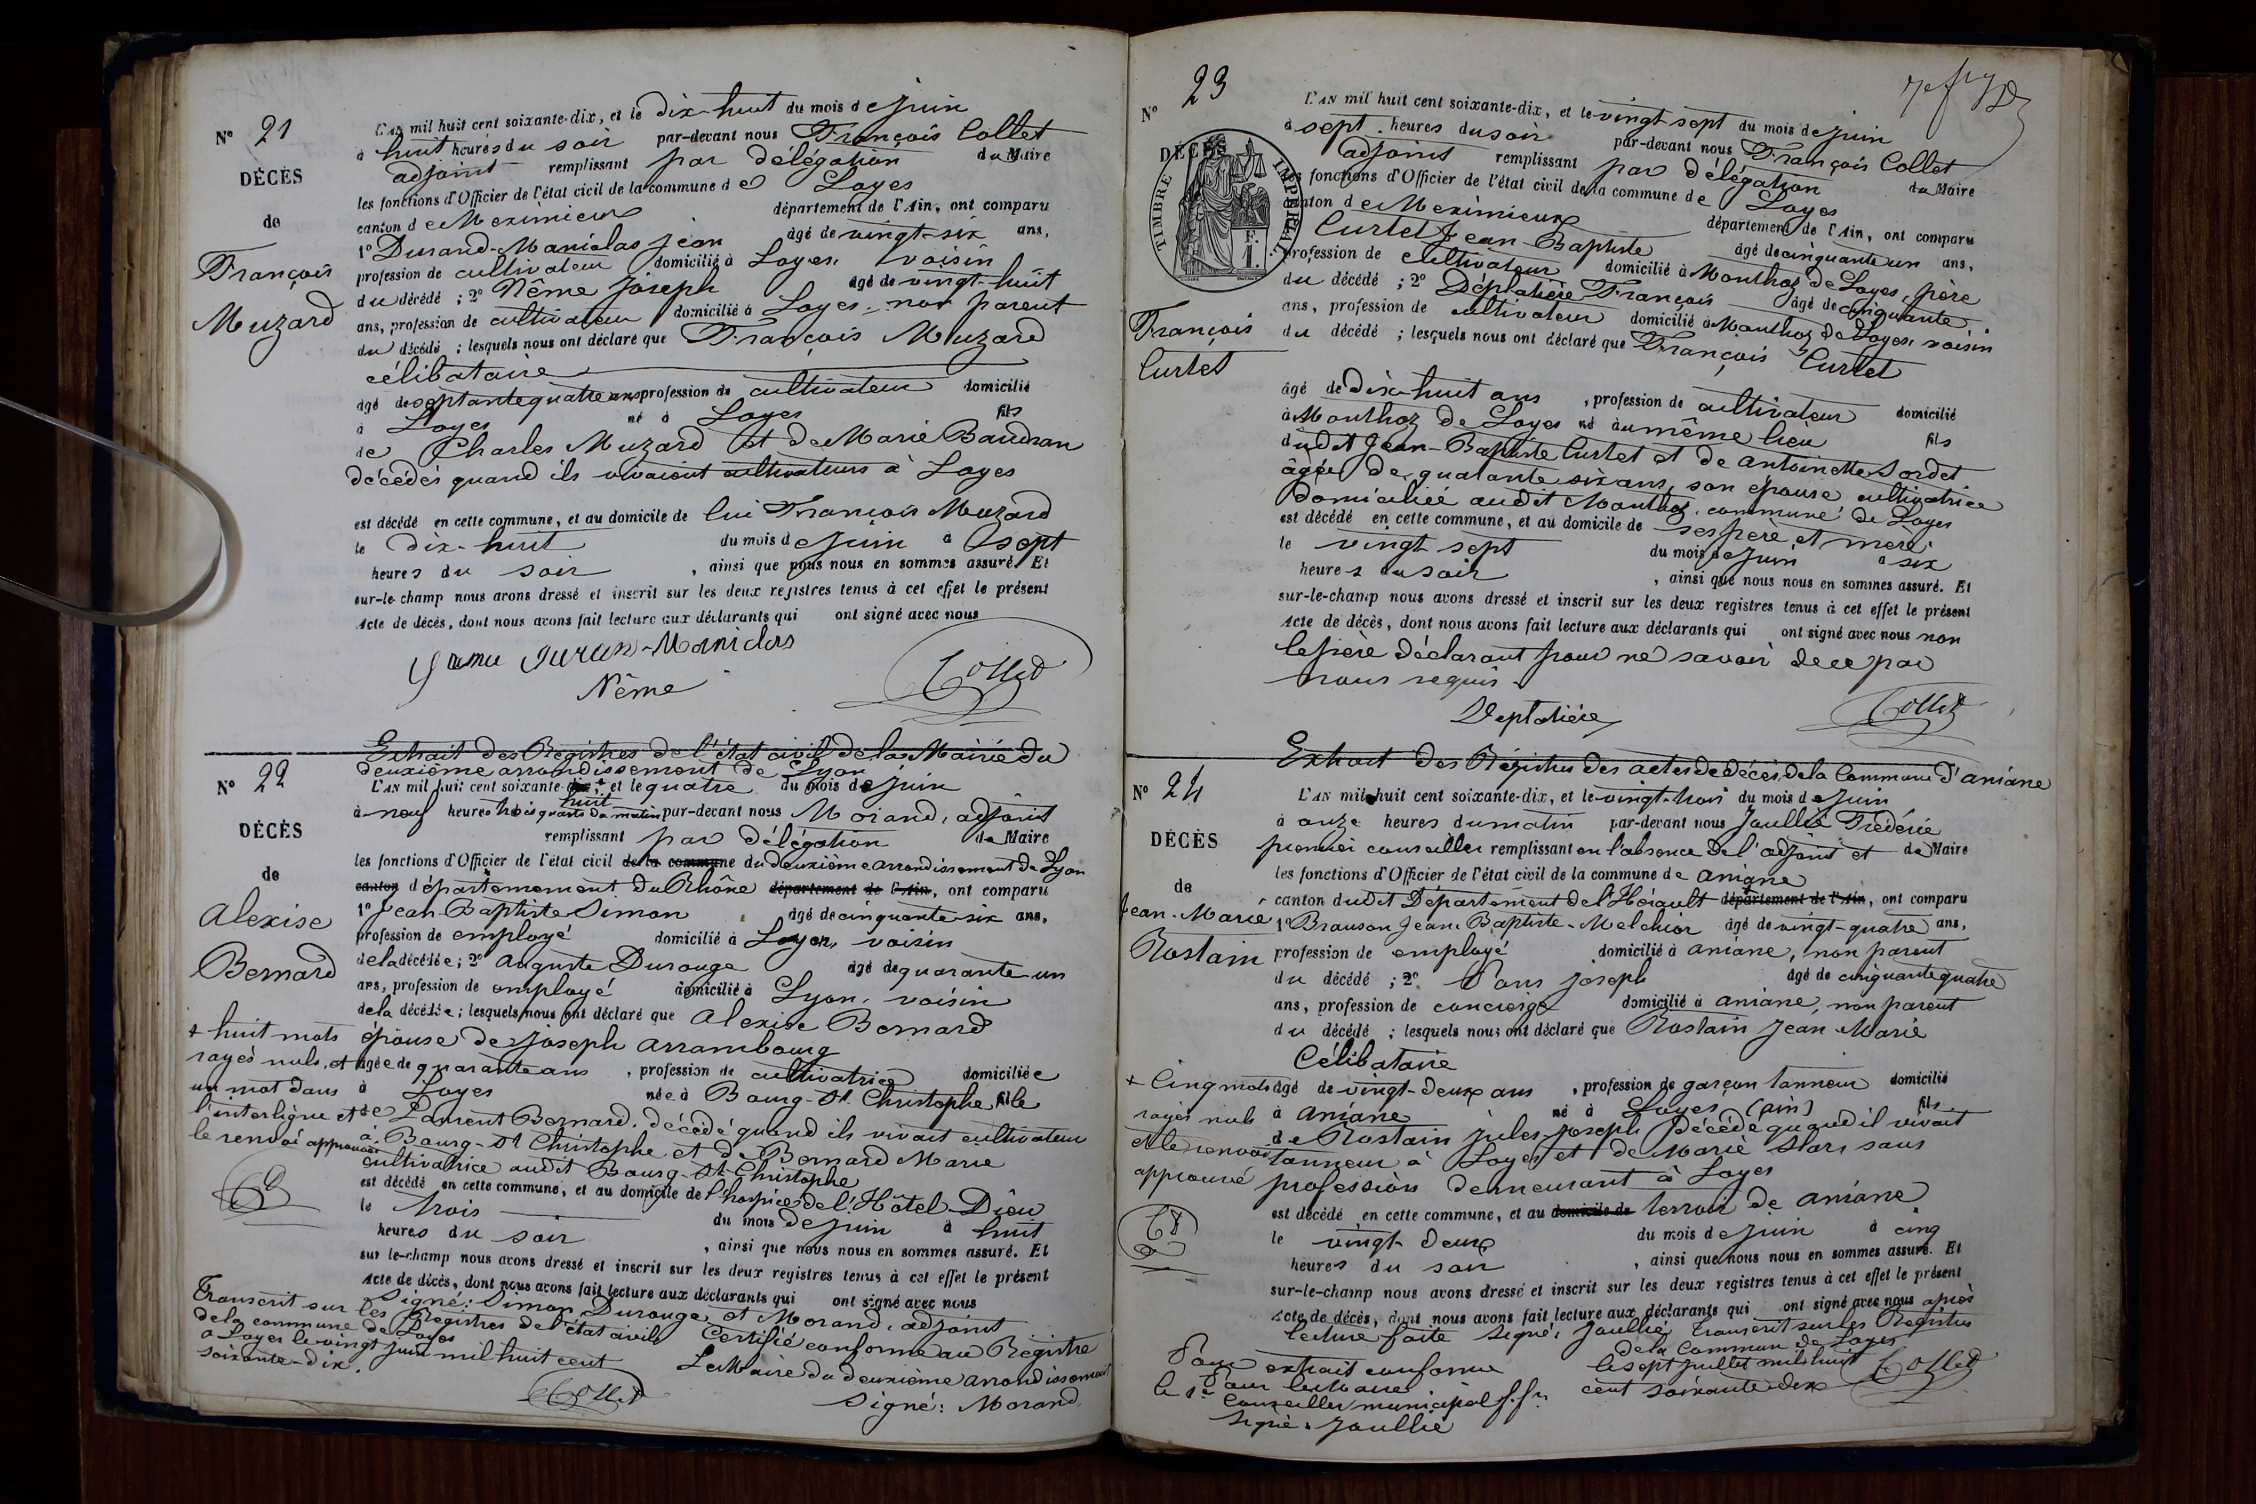 N° 21
DÉCÈS
de
François
Muzard
L'AN mil huit cent soixante-dix, et le dix-huit du mois de juin
à huit heures du soir par-devant nous François Collet
adjoint remplissant par délégation du Maire
les fonctions d'Officier de l'état civil de la commune de Loyes
canton de Meximieux département de l'Ain, ont comparu
1° Durand-Maniclas Jean âgé de vingt-six ans,
profession de cultivateur domicilié à Loyes, voisin
du décédé ; 2° Nême Joseph âgé de vingt-huit
ans, profession de cultivateur domicilié à Loyes, non parent
du décédé ; lesquels nous ont déclaré que François Muzard
célibataire
âgé de septante quatre ans profession de cultivateur domicilié
à Loyes né à Loyes fils
de Charles Muzard et de Marie Baudran
décédés quand ils vivaient cultivateurs à Loyes
est décédé en cette commune, et au domicile de lui François Muzard
le dix-huit du mois de juin à sept
heures du soir , ainsi que nous nous en sommes assuré. Et
sur-le-champ nous avons dressé et inscrit sur les deux registres tenus à cet effet le présent
Acte de décès, dont nous avons fait lecture aux déclarants qui ont signé avec nous
Duran-Maniclas
Nême
Collet
N° 22
DÉCÈS
de
Alexise
Bernard
+ huit mots
rayés nuls, et
un mot dans
l'interligne et
le renvoi approuvés
Extrait des Registres de l'état civil de la Mairie du
deuxième arrondissement de Lyon
L'AN mil huit cent soixante-dix, et le quatre du mois de juin
à neuf heures trois quarts du matin par-devant nous Morand, adjoint
remplissant par délégation du Maire
les fonctions d'Officier de l'état civil de la commune du deuxième arrondissement de Lyon
canton département du Rhône département de l'Ain, ont comparu
1° Jean-Baptiste Simon âgé de cinquante-six ans,
profession de employé domicilié à Lyon, voisin
de la décédée ; 2° Auguste Durouge âgé de quarante un
ans, profession de employé domicilié à Lyon, voisin
de la décédée ; lesquels nous ont déclaré que Alexise Bernard
épouse de Joseph Arrambourg
âgée de quarante ans , profession de cultivatrice domiciliée
à Loyes née à Bourg-St Christophe fille
de Laurent Bernard, décédé quand ils vivait cultivateur
à Bourg-St Christophe et de Bernard Marie
cultivatrice audit Bourg-St Christophe
est décédé en cette commune, et au domicile de l'hospice de l'Hôtel-Dieu
le trois du mois de juin à huit
heures du soir , ainsi que nous nous en sommes assuré. Et
sur le-champ nous avons dressé et inscrit sur les deux registres tenus à cet effet le présent
Acte de décès, dont nous avons fait lecture aux déclarants qui ont signé avec nous
Signé : Simon, Durouge et Morand, adjoint
Transcrit sur les Registres de l'état civil
de la commune de Loyes
à Loyes le vingt juin mil huit cent
soixante-dix.
Collet
Certifié conforme au Registre
Le Maire du deuxième arrondissement
Signé : Morand
N° 23
DÉCÈS
TIMBRE IMPÉRIAL
F.
1.
François
Curtet
L'AN mil huit cent soixante-dix, et le vingt sept du mois de juin
à sept heures du soir par-devant nous François Collet
adjoint remplissant par délégation du Maire
les fonctions d'Officier de l'état civil de la commune de Loyes
canton de Meximieux département de l'Ain, ont comparu
Curtet Jean-Baptiste âgé de cinquante un ans,
profession de cultivateur domicilié à Monthoz de Loyes, père
du décédé ; 2° Déplatière François âgé de cinquante
ans, profession de cultivateur domicilié à Monthoz de Loyes, voisin
du décédé ; lesquels nous ont déclaré que François Curtet
âgé de dix-huit ans , profession de cultivateur domicilié
à Monthoz de Loyes né au même lieu fils
dudit Jean-Baptiste Curtet et de Antoinette Sordet
âgée de quarante six ans, son épouse cultivatrice
domiciliée audit Monthoz, commune de Loyes
est décédé en cette commune, et au domicile de ses père et mère
le vingt sept du mois de juin à six
heures du soir , ainsi que nous nous en sommes assuré. Et
sur-le-champ nous avons dressé et inscrit sur les deux registres tenus à cet effet le présent
Acte de décès, dont nous avons fait lecture aux déclarants qui ont signé avec nous non
le père déclarant pour ne savoir de ce par
nous requis.
Deplatière
Collet
N° 24
DÉCÈS
de
Jean-Marie
Rostain
+ Cinq mots
rayés nuls
et le renvoi
approuvé
Extrait des Régistres des actes de décès de la Commune d'Aniane
L'AN mil huit cent soixante-dix, et le vingt-trois du mois de juin
à onze heures du matin par-devant nous Jaullié Frédéric
premier conseiller remplissant en l'absence de l'adjoint et du Maire
les fonctions d'Officier de l'état civil de la commune de Aniane
canton dudit Département de l'Hérault département de l'Ain, ont comparu
1° Brauson Jean Baptiste-Melchior âgé de vingt-quatre ans,
profession de employé domicilié à Aniane, non parent
du décédé ; 2° Pons Joseph âgé de cinquante quatre
ans, profession de concierge domicilié à Aniane, non parent
du décédé ; lesquels nous ont déclaré que Rostain Jean Marie
Célibataire
âgé de vingt-deux ans , profession de garçon tanneur domicilié
à Aniane né à Loyes (Ain) fils
de Rostain Jules Joseph décédé quand il vivait
tanneur à Loyes et de Marie Stars sans
profession demeurant à Loyes
est décédé en cette commune, et au domicile de terroir de Aniane
le vingt-deux du mois de juin à cinq
heures du soir , ainsi que nous nous en sommes assuré. Et
sur-le-champ nous avons dressé et inscrit sur les deux registres tenus à cet effet le présent
Acte de décès, dont nous avons fait lecture aux déclarants qui ont signé avec nous après
lecture faite signé, Jaullié
Transcrit sur les Registres
de la Commune de Loyes
le sept juillet mil huit
cent soixante dix
Collet
Pour extrait conforme
Pour le Maire
le 1er Conseiller municipal f.f.n
Signé : Jaullié